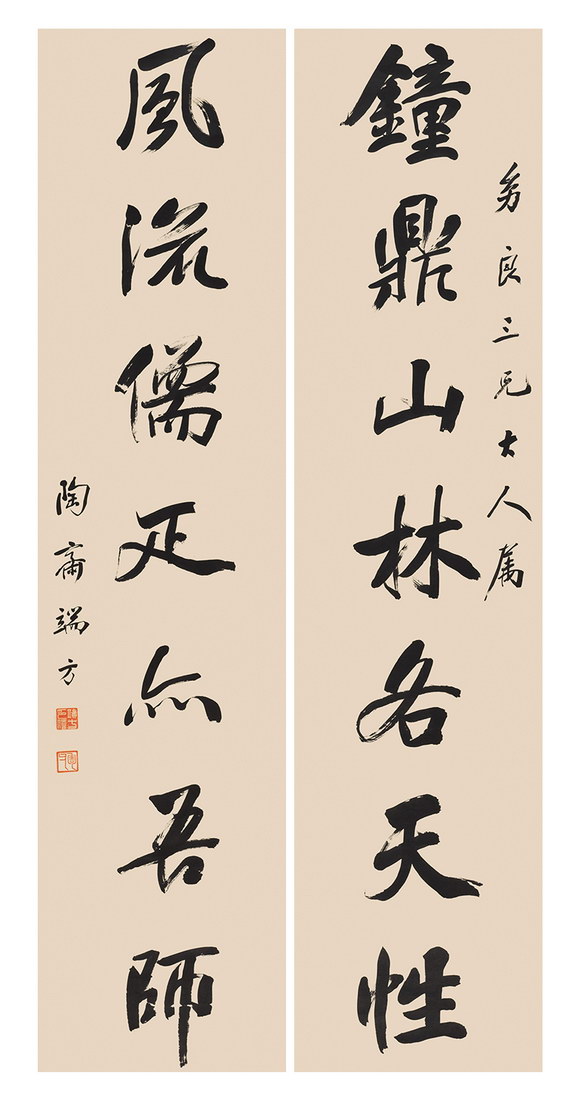 良三兄大人属
鐘鼎山林各天性
風流儒疋亦吾師
陶齋端方